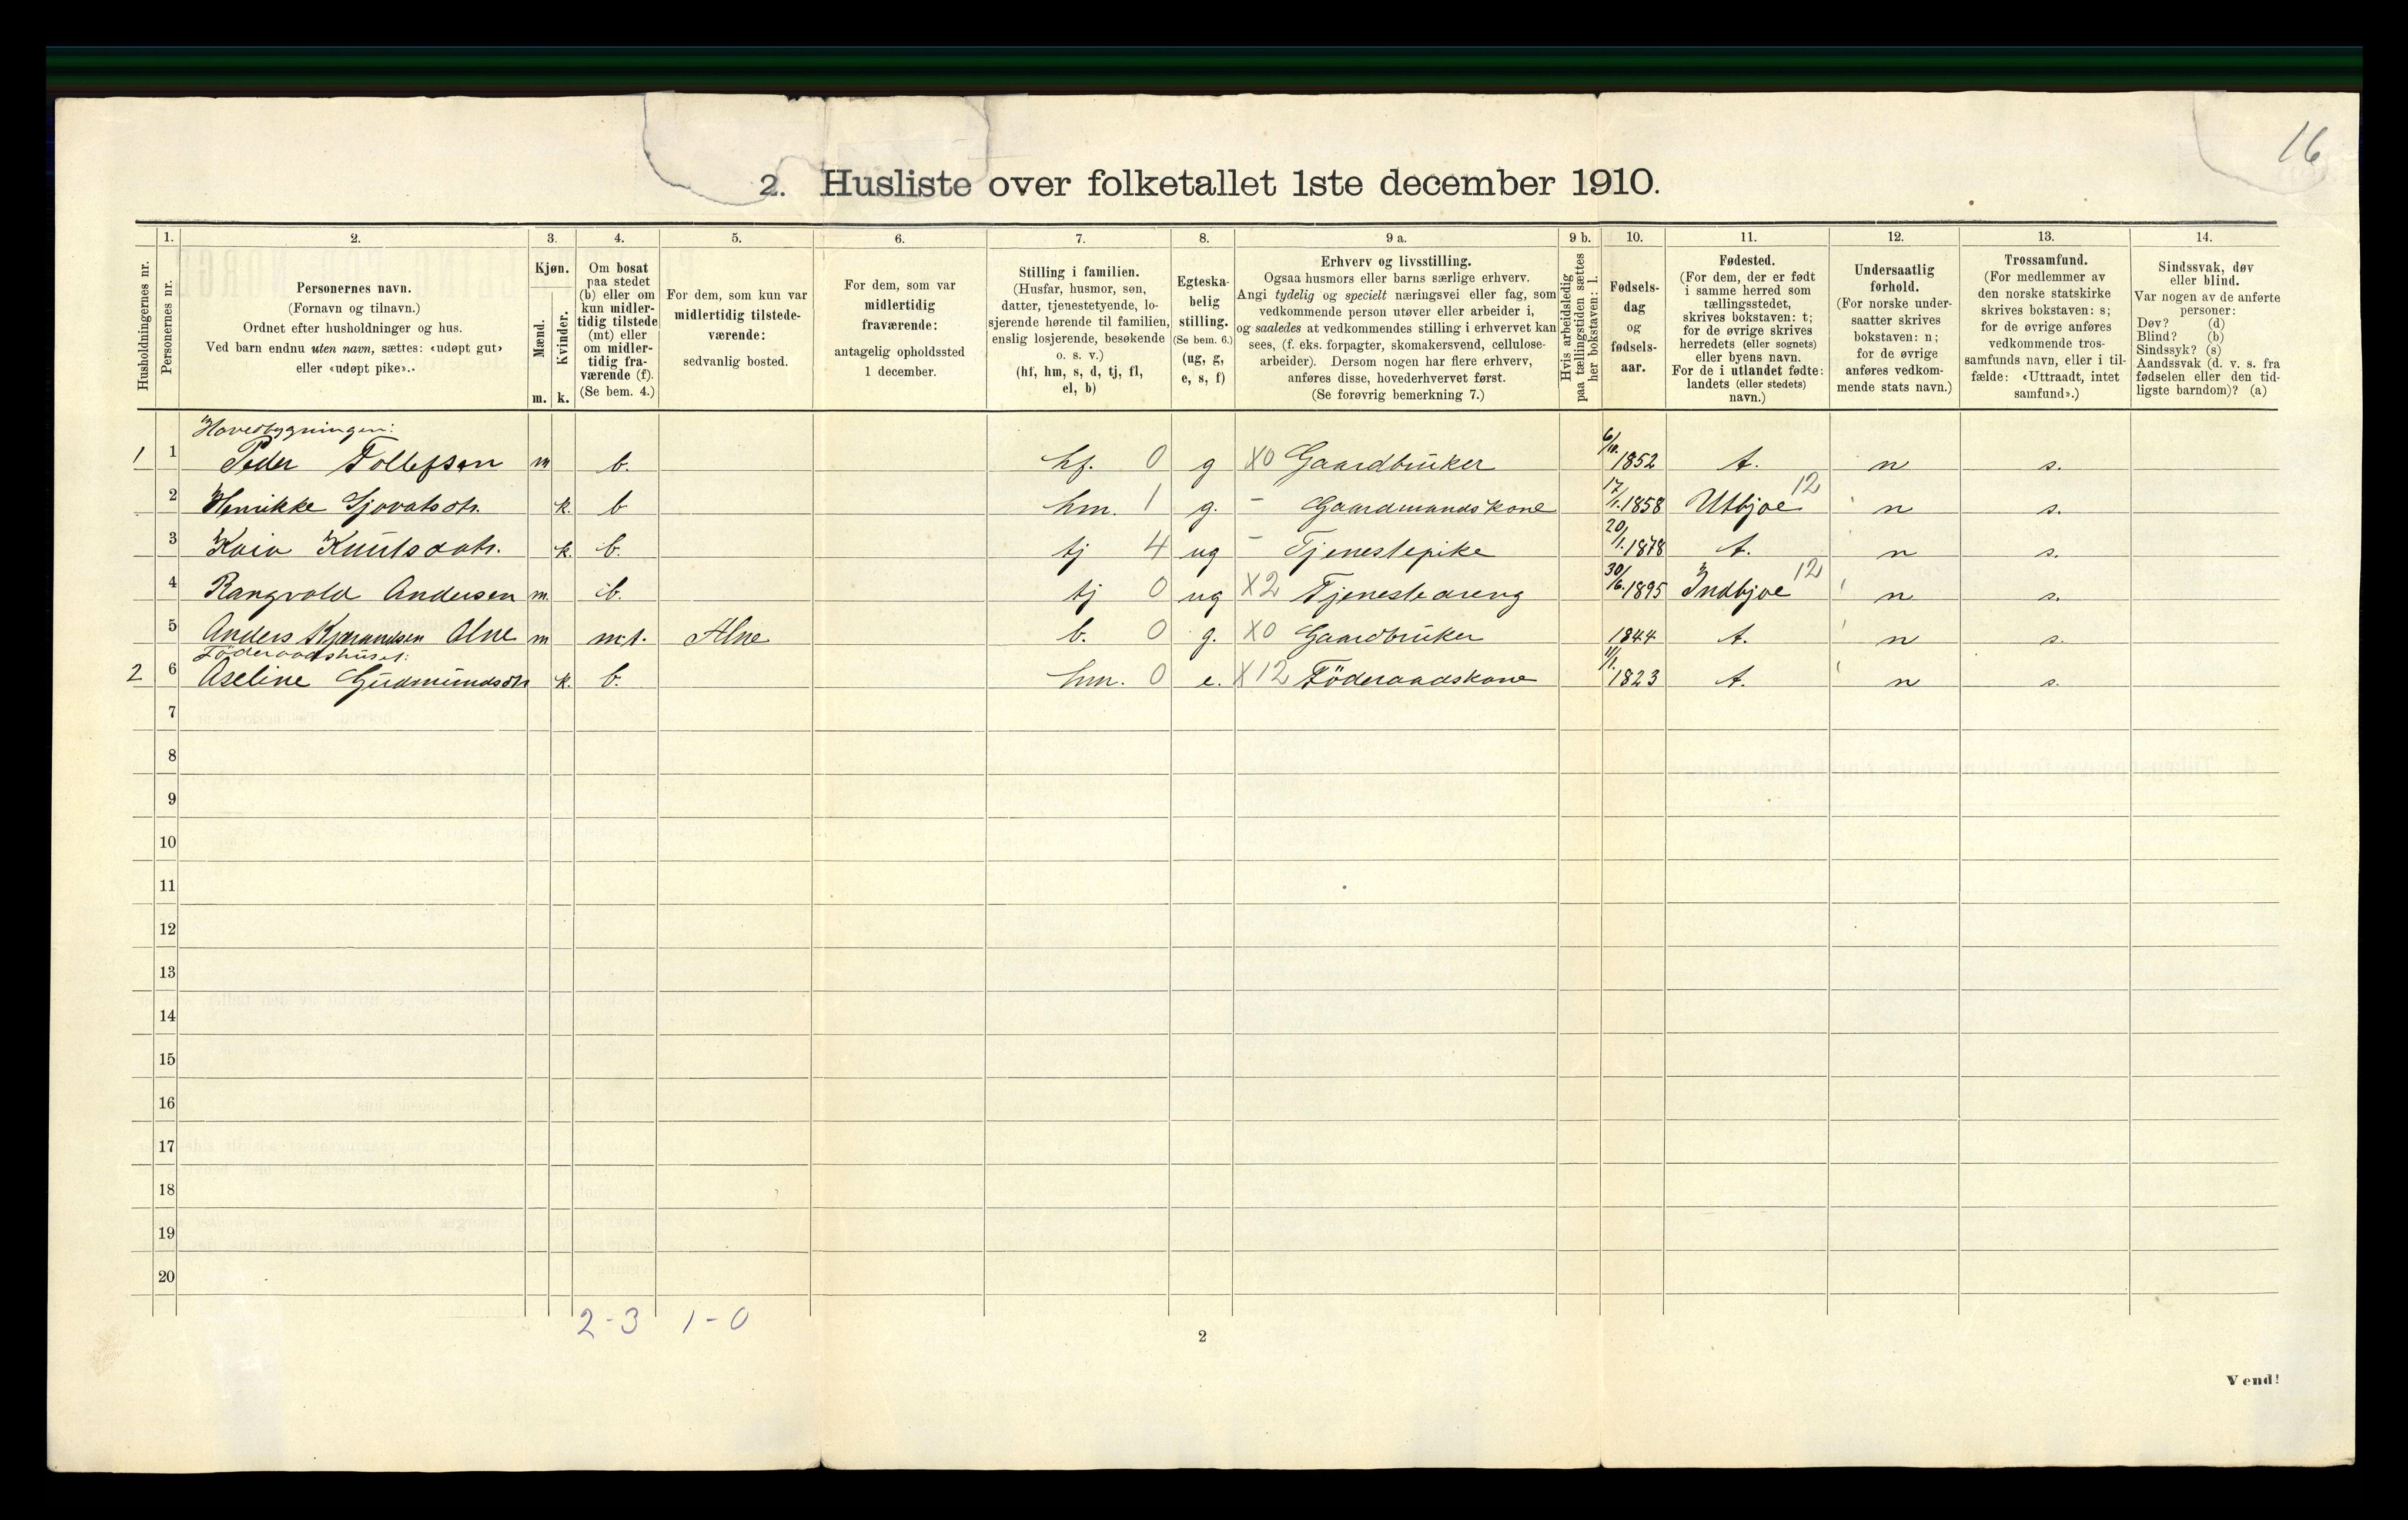 16
2. Husliste over folketallet 1ste december 1910.
Husholdningernes nr.
1.
Personernes nr.
2.
Personernes navn.
(Fornavn og tilnavn.)
Ordnet efter husholdninger og hus.
Ved barn endnu uten navn, sættes: «udøpt gut»
eller «udøpt pike».
3.
Kjøn.
Mænd.
Kvinder.
m. k.
4.
Om bosat
paa stedet
(b) eller om
kun midler-
tidig tilstede
(mt) eller
om midler-
tidig fra-
værende (f).
(Se bem. 4.)
5.
For dem, som kun var
midlertidig tilstede-
værende:
sedvanlig bosted.
6.
For dem, som var
midlertidig
fraværende:
antagelig opholdssted
1 december.
7.
Stilling i familien.
(Husfar, husmor, søn,
datter, tjenestetyende, lo-
sjerende hørende til familien,
enslig losjerende, besøkende
o. s. v.)
(hf, hm, s, d, tj, fl,
el, b)
8.
Egteska-
belig
stilling.
(Se bem. 6.)
(ug, g,
e, s, f)
9 a.
Erhverv og livsstilling.
Ogsaa husmors eller barns særlige erhverv.
Angi tydelig og specielt næringsvei eller fag, som
vedkommende person utøver eller arbeider i,
og saaledes at vedkommendes stilling i erhvervet kan
sees, (f. eks. forpagter, skomakersvend, cellulose-
arbeider). Dersom nogen har flere erhverv,
anføres disse, hovederhvervet først.
(Se forøvrig bemerkning 7.)
9 b.
Hvis arbeidsledig
paa tællingstiden sættes
her bokstaven: l.
10.
Fødsels-
dag
og
fødsels-
aar.
11.
Fødested.
(For dem, der er født
i samme herred som
tællingsstedet,
skrives bokstaven: t;
for de øvrige skrives
herredets (eller sognets)
eller byens navn.
For de i utlandet fødte:
landets (eller stedets)
navn.)
12.
Undersaatlig
forhold.
(For norske under-
saatter skrives
bokstaven: n;
for de øvrige
anføres vedkom-
mende stats navn.)
13.
Trossamfund.
(For medlemmer av
den norske statskirke
skrives bokstaven: s;
for de øvrige anføres
vedkommende tros-
samfunds navn, eller i til-
fælde: «Uttraadt, intet
samfund».)
14.
Sindssvak, døv
eller blind.
Var nogen av de anførte
personer:
Døv? (d)
Blind? (b)
Sindssyk? (s)
Aandssvak (d. v. s. fra
fødselen eller den tid-
ligste barndom)? (a)
Hovedbygningen:
1 1 Peder Tollefsen m b. hf. 0 g X0 Gaardbruker 6/10. 1852 t. n s.
2 Henrikke Gjovatsdtr. k. b hm. 1 g. - Gaardmandskone 17/1. 1858 Utbjoe 12 n s.
3 Kaia Knutsdatr. k. b. tj 4 ug - Tjenestepike 20/1. 1878 t. n s.
4 Rangvald Andersen m. b. tj 0 ug X2 Tjenestedreng 30/6. 1895 Indbjoe 12 n s.
5 Anders Olne m m.t. Alne b. 0 g. X0 Gaardbruker 1844 t. n s.
Föderaadshuset:
2 6 Aseline Gudmundsdtr k. b. hm. 0 e. X12 Föderaadskone 11/1. 1823 t. n s.
7
8
9
10
11
12
13
14
15
16
17
18
19
20
2-3 1-0
2
Vend!